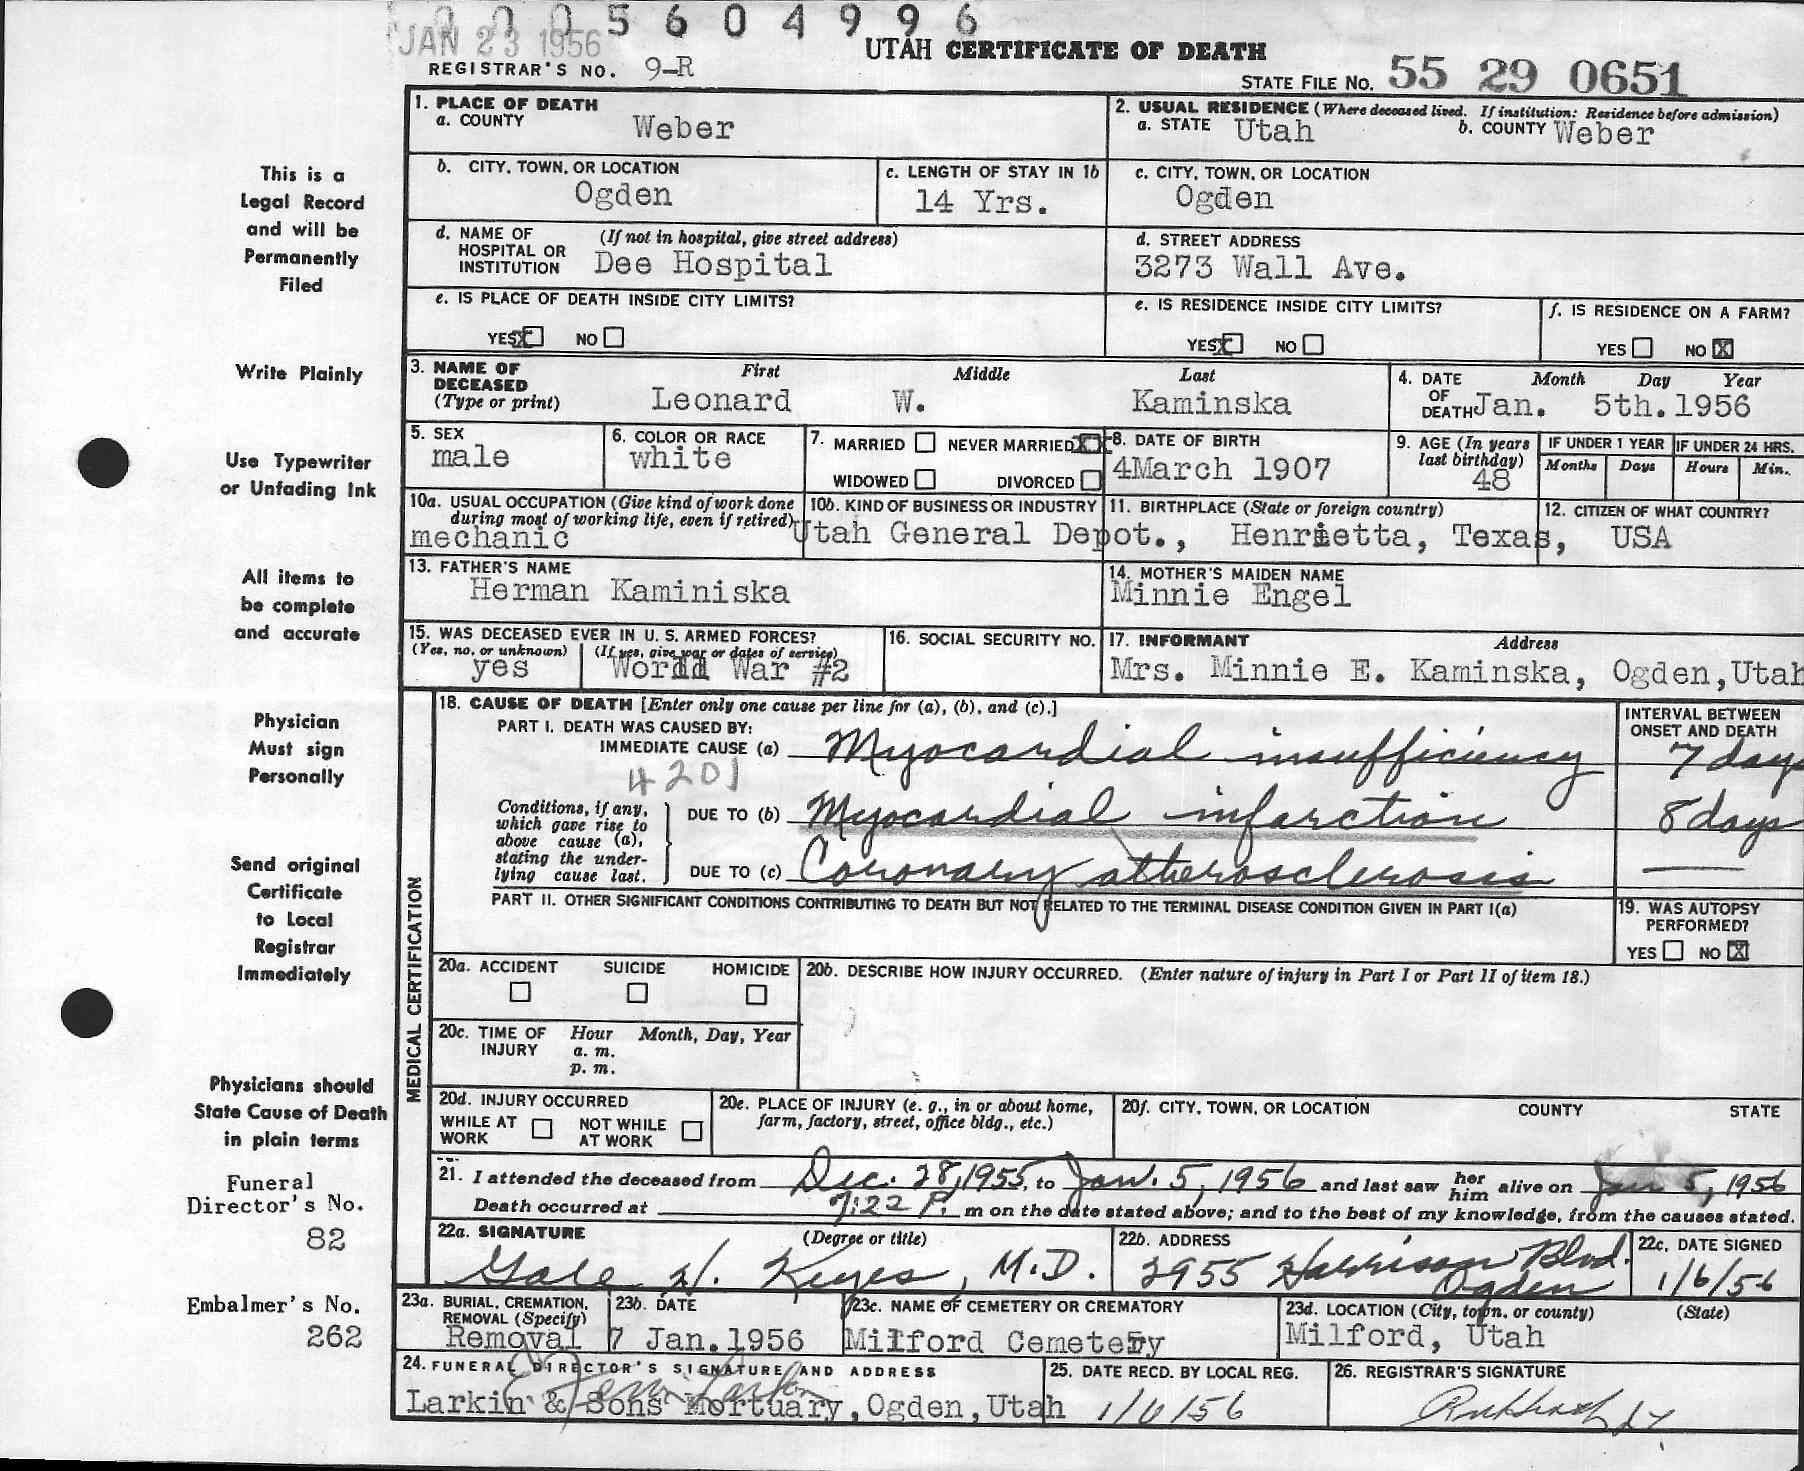 0005604996
JAN 23 1956
UTAH CERTIFICATE OF DEATH
REGISTRAR'S NO. 9-R
STATE FILE NO. 55 29 0651
This is a
Legal Record
and will be
Permanently
Filed
Write Plainly
Use Typewriter
or Unfading Ink
All items to
be complete
and accurate
Physician
Must sign
Personally
Send original
Certificate
to Local
Registrar
Immediately
Physicians should
State Cause of Death
in plain terms
Funeral
Director's No.
82
Embalmer's No.
262
1. PLACE OF DEATH
a. COUNTY Weber
2. USUAL RESIDENCE (Where deceased lived. If institution: Residence before admission)
a. STATE Utah b. COUNTY Weber
b. CITY, TOWN, OR LOCATION
Ogden
c. LENGTH OF STAY IN 1b
14 Yrs.
c. CITY, TOWN, OR LOCATION
Ogden
d. NAME OF HOSPITAL OR INSTITUTION (If not in hospital, give street address)
Dee Hospital
d. STREET ADDRESS
3273 Wall Ave.
e. IS PLACE OF DEATH INSIDE CITY LIMITS?
YES X NO
e. IS RESIDENCE INSIDE CITY LIMITS?
YES X NO
f. IS RESIDENCE ON A FARM?
YES NO X
3. NAME OF DECEASED (Type or print)
First Middle Last
Leonard W. Kaminska
4. DATE OF DEATH Month Day Year
Jan. 5th. 1956
5. SEX
male
6. COLOR OR RACE
white
7. MARRIED NEVER MARRIED X
WIDOWED DIVORCED
8. DATE OF BIRTH
4March 1907
9. AGE (In years last birthday)
48
IF UNDER 1 YEAR IF UNDER 24 HRS.
Months Days Hours Min.
10a. USUAL OCCUPATION (Give kind of work done during most of working life, even if retired)
mechanic
10b. KIND OF BUSINESS OR INDUSTRY
Utah General Depot.,
11. BIRTHPLACE (State or foreign country)
Henrietta, Texas,
12. CITIZEN OF WHAT COUNTRY?
USA
13. FATHER'S NAME
Herman Kaminiska
14. MOTHER'S MAIDEN NAME
Minnie Engel
15. WAS DECEASED EVER IN U. S. ARMED FORCES?
(Yes, no, or unknown) (If yes, give war or dates of service)
yes World War #2
16. SOCIAL SECURITY NO.
17. INFORMANT Address
Mrs. Minnie E. Kaminska, Ogden, Utah
MEDICAL CERTIFICATION
18. CAUSE OF DEATH [Enter only one cause per line for (a), (b), and (c).]
INTERVAL BETWEEN ONSET AND DEATH
PART I. DEATH WAS CAUSED BY:
IMMEDIATE CAUSE (a) Myocardial insufficiency 7 days
4201
Conditions, if any, which gave rise to above cause (a), stating the underlying cause last.
DUE TO (b) Myocardial infarction 8 days
DUE TO (c) Coronary atherosclerosis —
PART II. OTHER SIGNIFICANT CONDITIONS CONTRIBUTING TO DEATH BUT NOT RELATED TO THE TERMINAL DISEASE CONDITION GIVEN IN PART I(a)
19. WAS AUTOPSY PERFORMED?
YES NO X
20a. ACCIDENT SUICIDE HOMICIDE
20b. DESCRIBE HOW INJURY OCCURRED. (Enter nature of injury in Part I or Part II of item 18.)
20c. TIME OF INJURY Hour Month, Day, Year
a. m.
p. m.
20d. INJURY OCCURRED
WHILE AT WORK NOT WHILE AT WORK
20e. PLACE OF INJURY (e. g., in or about home, farm, factory, street, office bldg., etc.)
20f. CITY, TOWN, OR LOCATION COUNTY STATE
21. I attended the deceased from Dec. 28, 1955, to Jan. 5, 1956 and last saw her him alive on Jan 5, 1956
Death occurred at 7:22 P. m on the date stated above; and to the best of my knowledge, from the causes stated.
22a. SIGNATURE (Degree or title)
Gale W. Keyes, M.D.
22b. ADDRESS
2955 Harrison Blvd. Ogden
22c. DATE SIGNED
1/6/56
23a. BURIAL, CREMATION, REMOVAL (Specify)
Removal
23b. DATE
7 Jan. 1956
23c. NAME OF CEMETERY OR CREMATORY
Milford Cemetery
23d. LOCATION (City, town, or county) (State)
Milford, Utah
24. FUNERAL DIRECTOR'S SIGNATURE AND ADDRESS
Larkin & Sons Mortuary, Ogden, Utah
25. DATE RECD. BY LOCAL REG.
1/6/56
26. REGISTRAR'S SIGNATURE